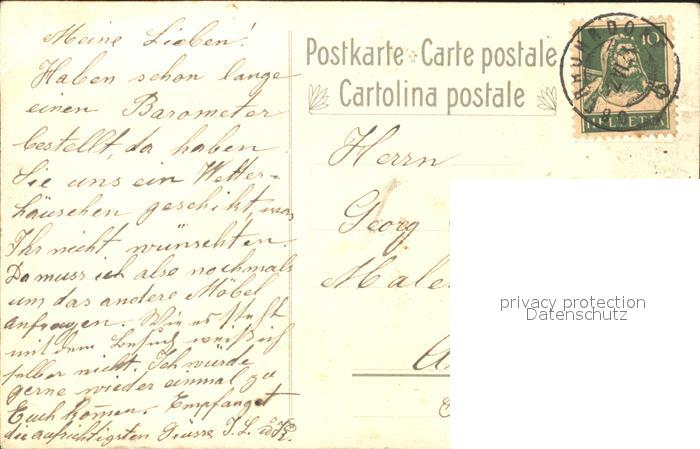 Meine Lieben!
Haben schon lange
einen Barometer
bestellt, da haben
Sie uns ein Wetter-
häuschen geschikt, was
Ihr nicht wünschten.
Da muss ich also nochmals
um das andere Möbel
anfragen. Wie es steht
mit dem Besuch weiß ich
selber nicht. Ich würde
gerne wieder einmal zu
Euch kommen. Empfanget
die aufrichtigsten Grüsse J. L.
Postkarte Carte postale
Cartolina postale
10
HELVETIA
Herrn
Georg
Male
privacy protection
Datenschutz